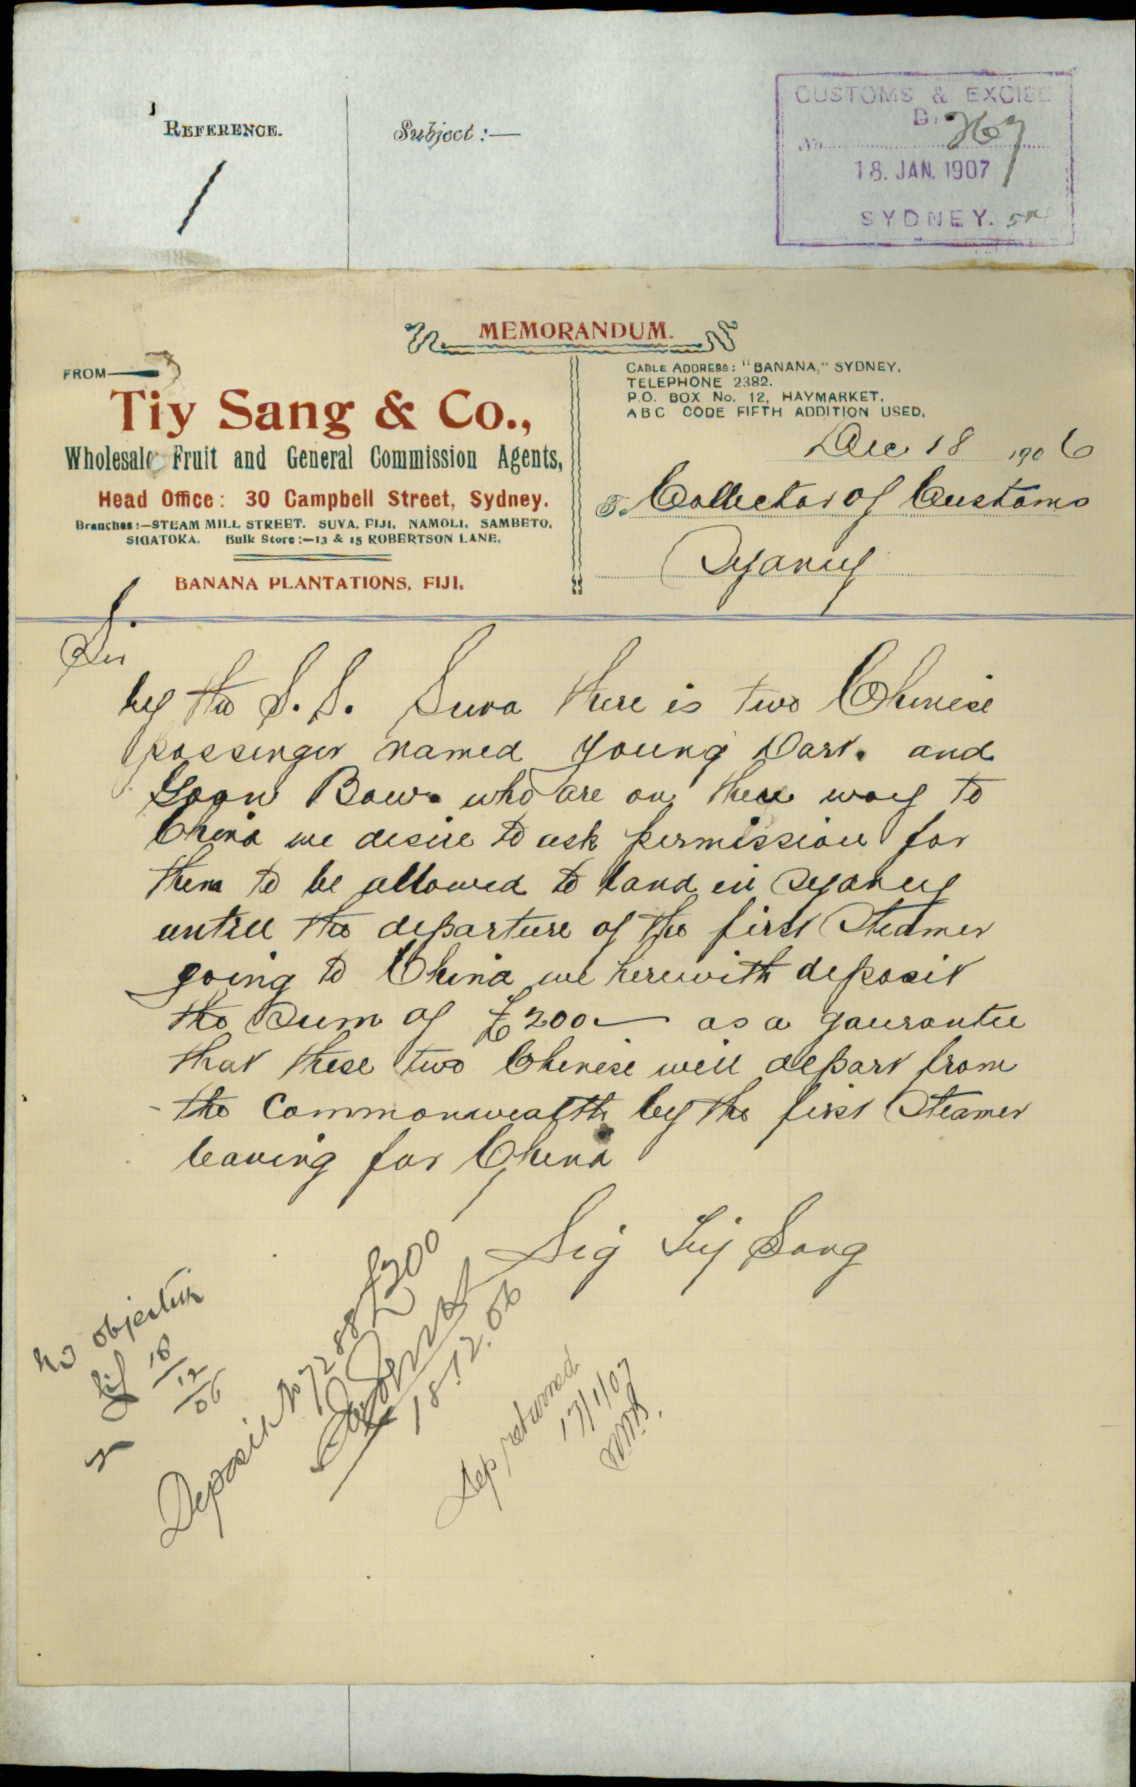 REFERENCE.
Subject:—
1
CUSTOMS & EXCISE
No 267
18. JAN. 1907
SYDNEY.
MEMORANDUM.
FROM
Tiy Sang & Co.,
Wholesale Fruit and General Commission Agents,
Head Office: 30 Campbell Street, Sydney.
Branches:—STEAM MILL STREET. SUVA, FIJI, NAMOLI, SAMBETO,
SIGATOKA. Bulk Store:—13 & 15 ROBERTSON LANE.
BANANA PLANTATIONS, FIJI.
CABLE ADDRESS: "BANANA," SYDNEY.
TELEPHONE 2382.
P.O. BOX No. 12, HAYMARKET.
ABC CODE FIFTH ADDITION USED.
Dec 18 1906
To Collector of Customs
Sydney
Sir
by the S.S. Suva there is two Chinese
passenger named Young Dart. and
Goon Bow. who are on their way to
China we desire to ask permission for
them to be allowed to land in Sydney
untill the departure of the first Steamer
going to China we herewith deposit
the Sum of £200 — as a gaurantee
that these two Chinese will depart from
the Commonwealth by the first Steamer
leaving for China
Sig Tiy Sang
No objection
18
12
06
Deposit No 7288 £200
18.12.06
Dep returned
17/1/07